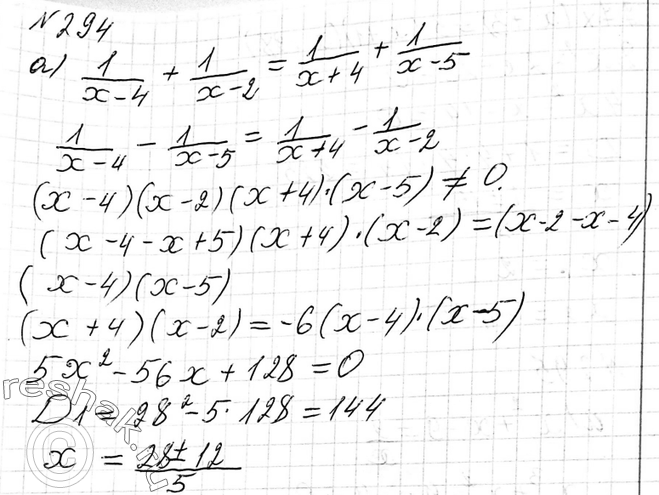 №294
а) 1/(x-4) + 1/(x-2) = 1/(x+4) + 1/(x-5)
1/(x-4) - 1/(x-5) = 1/(x+4) - 1/(x-2)
(x-4)(x-2)(x+4)·(x-5)≠0.
(x-4-x+5)(x+4)·(x-2)=(x-2-x-4)
(x-4)(x-5)
(x+4)(x-2)=-6(x-4)·(x-5)
5x²-56x+128=0
D1=28²-5·128=144
x = (28±12)/5
reshak.ru